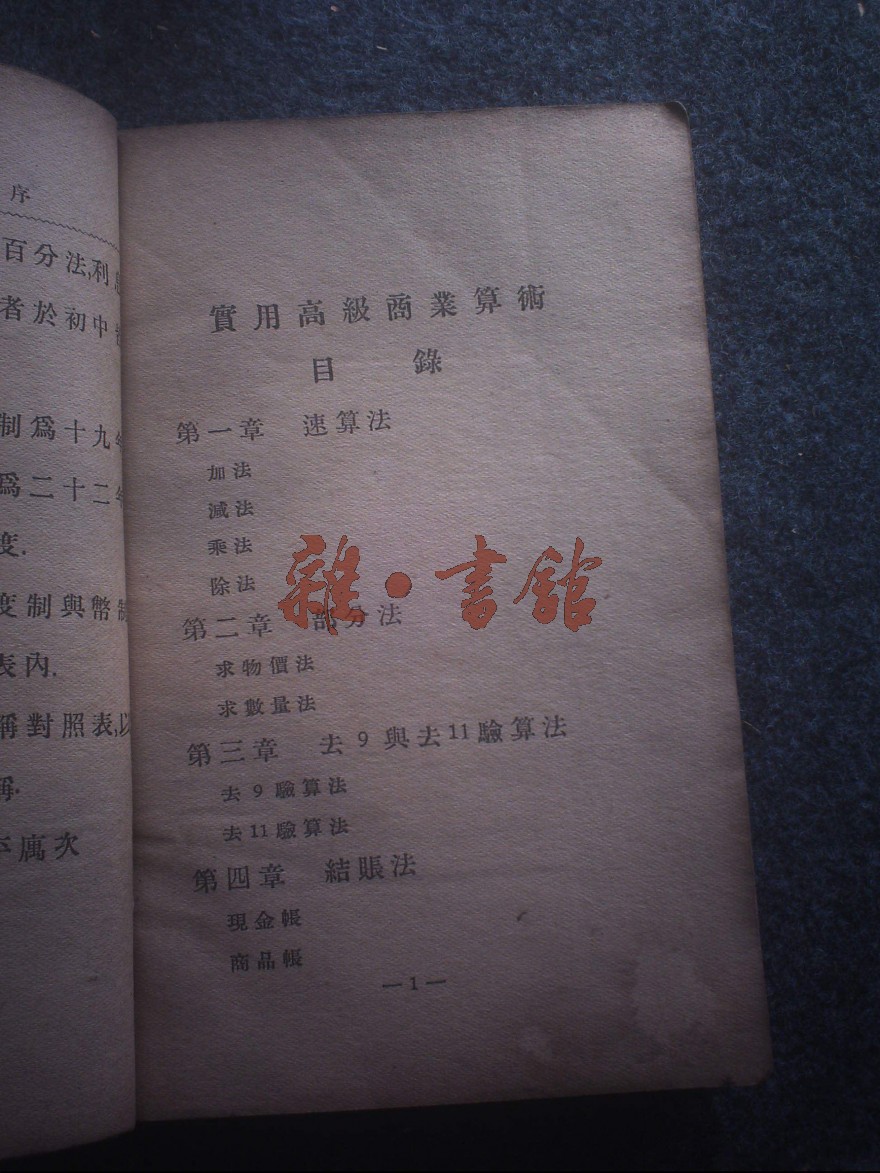 序
百分法,利
者於初中
制爲十九
爲二十二
度.
度制與幣制
表內.
稱對照表,以
稱.
厲次
實用高級商業算術
目錄
第一章 速算法
加法
減法
乘法
除法
第二章 部分法
求物價法
求數量法
第三章 去9與去11驗算法
去9驗算法
去11驗算法
第四章 結賬法
現金帳
商品帳
—1—
雜·書館